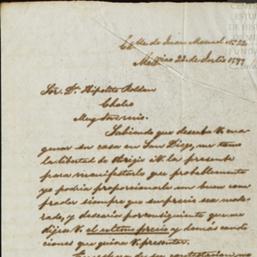 Cle de Juan Manuel No 22
Mexico 22 de Julio 1897
Sor. Dn. Hipolito Roldan
Chalco
Muy Sr. mio.
Sabiendo que desea V. ena
genar su casa en San Diego, me tomo
la libertad de dirigir á V. la presente
para manifestarle que probablemente
yo podria proporcionarle un buen com
prador siempre que su precio sea mode
rado, y desearia por consiguiente que me
dijera V. el ultimo precio y demás condi
ciones que quiera V. poner.
En espera de su contestacion